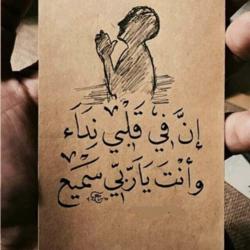 إِنَّ فِي قَلْبِي نِدَاء
وأنْتَ يَا رَبِّي سَمِيع